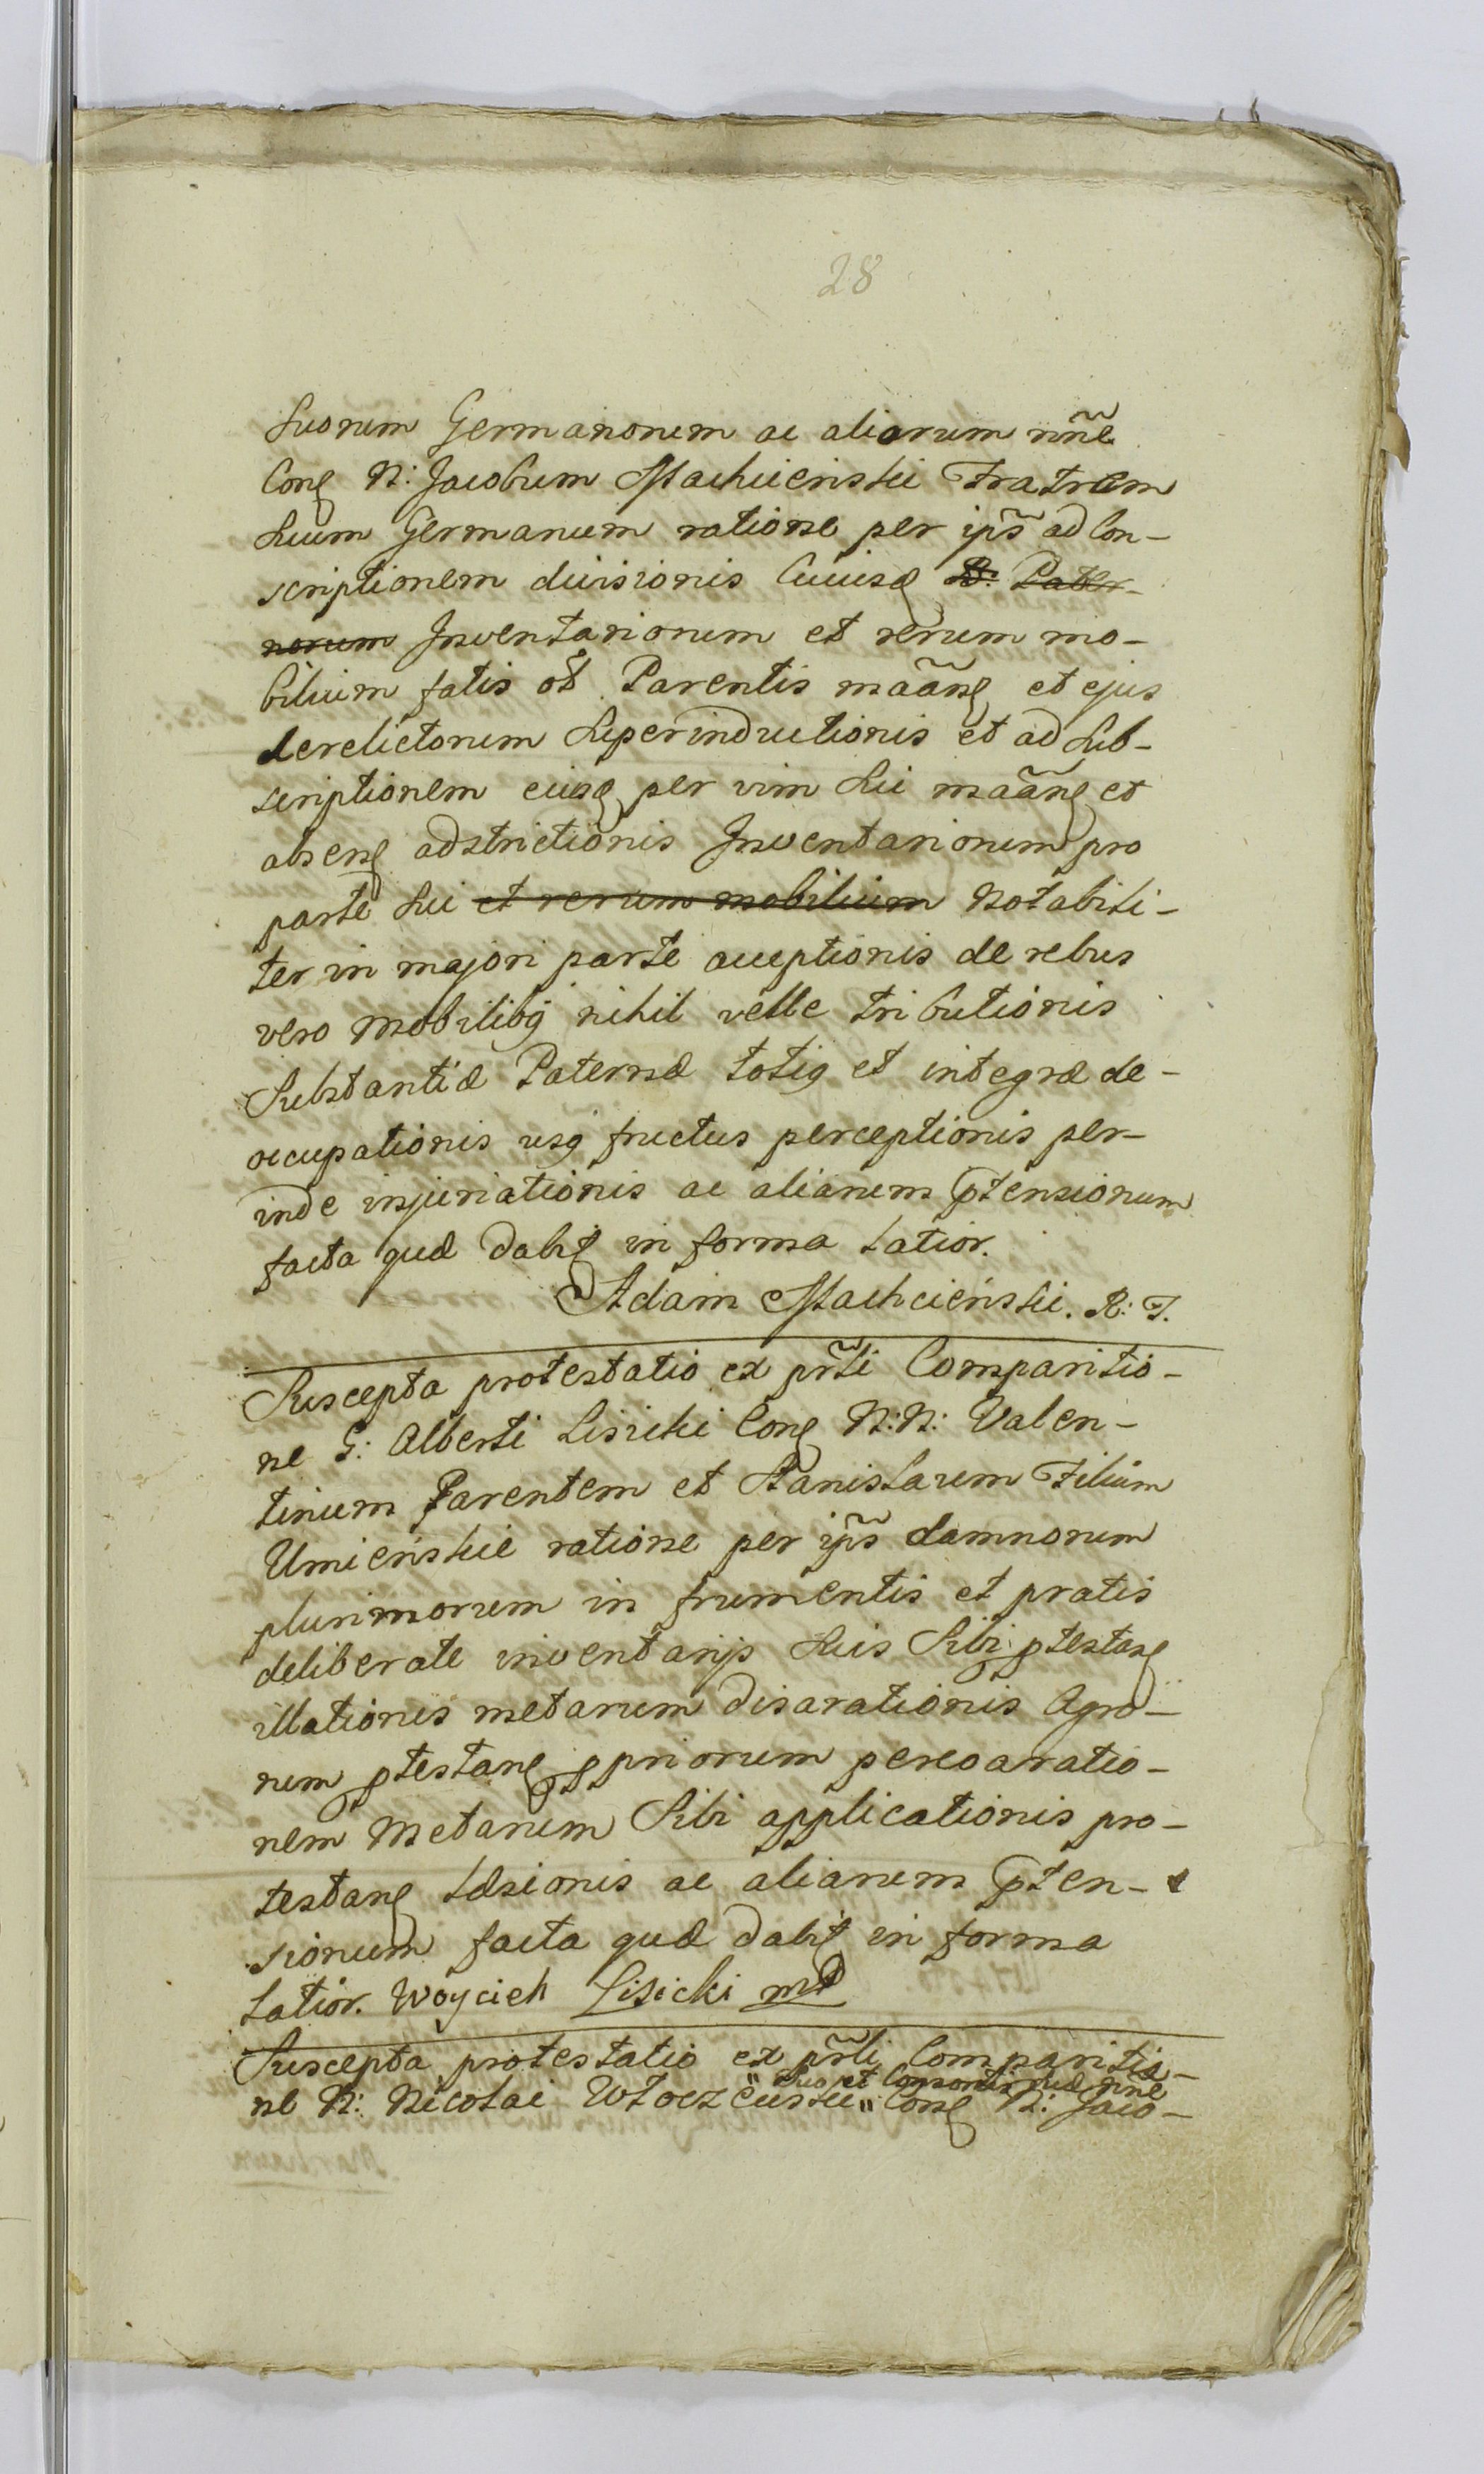 28
Suorum Germanorum ac aliorum nñe
Cong N: Jacobum Machcienski Fratrem
Suum Germanum ratione per ips̃ ad Con-
scriptionem divisionis Cuiusq B: Pater-
norum Inventariorum et rerum mo-
bilium fatis ol Parentis maãng et ejus
derelictorum Superinductionis et ad Sub-
scriptionem eiusq per vim Sui maãng et
abseng adstrictionis Inventariorum pro
parte Sui et rerum mobilium Notabili-
ter in majori parte acceptionis de rebus
vero Mobilibg nihil velle tributionis
Substantiæ Paternæ totig et integræ de-
occupationis usq fructus perceptionis per-
inde injuriationis ac aliarum ptensionum
facta quæ dabit in forma latior.
Adam Machcienski. R: T.
Suscepta protestatio ex pr̃li Comparitio-
ne G: Alberti Lisicki Cong N:N: Valen-
tinum Parentem et Stanislaum Filium
Umienskie ratione per ips̃ damnorum
plurimorum in frumentis et pratis
deliberate inventarijs Suis Sibi ptestang
illationis metarum disarationis Agro-
rum ptestang ppriorum peroaratio-
nem Metarum Sibi applicationis pro-
testang læsionis ac aliarum pten-
sionum facta quæ dabit in forma
latior. Woyciech Lisicki mp
Suscepta protestatio ex pr̃li Comparitio-
" Suo et Consortis suæ nñe
ne N: Nicolai Włoczewski " Cong N: Jaco-